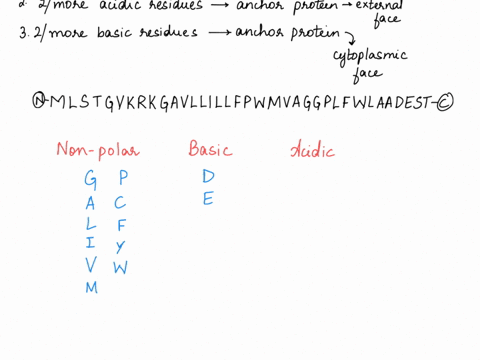 2. 2/more acidic residues → anchor protein → external
face
3. 2/more basic residues → anchor protein
cytoplasmic
face
N-MLSTGVKRKGAVLLILLFPWMVAGGPLFWLAADEST-C
Non-polar Basic Acidic
G P D
A C E
L F
I Y
V W
M